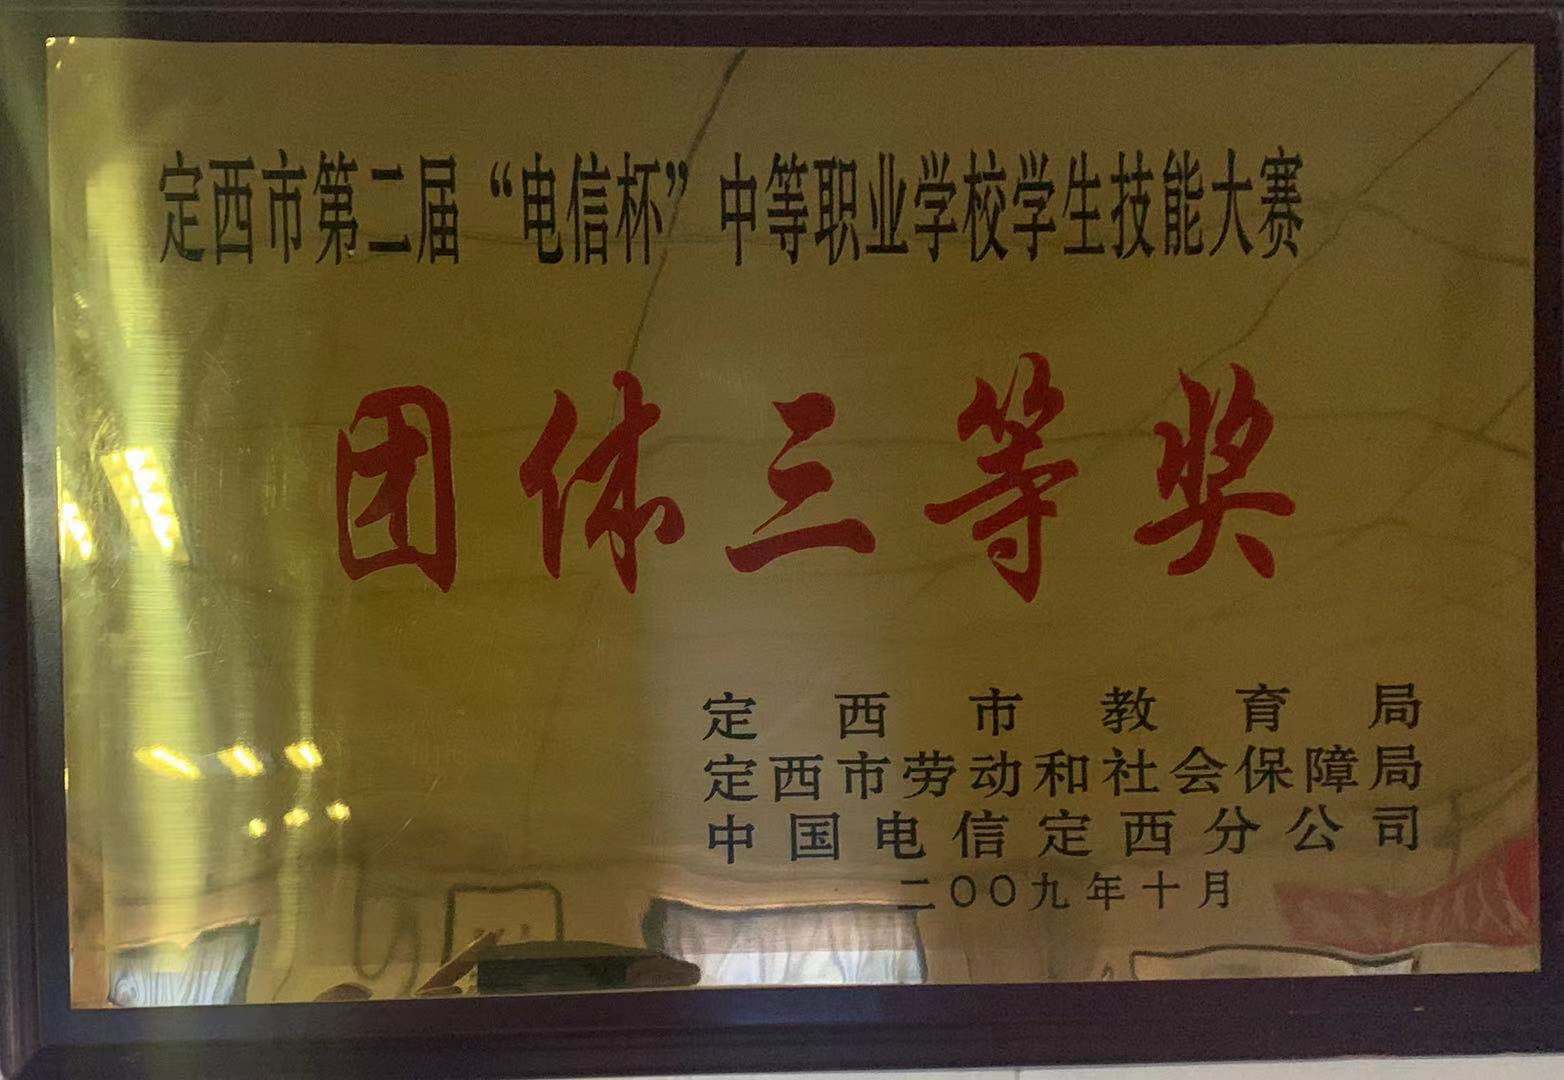 定西市第二届“电信杯”中等职业学校学生技能大赛
团体三等奖
定西市教育局
定西市劳动和社会保障局
中国电信定西分公司
二〇〇九年十月